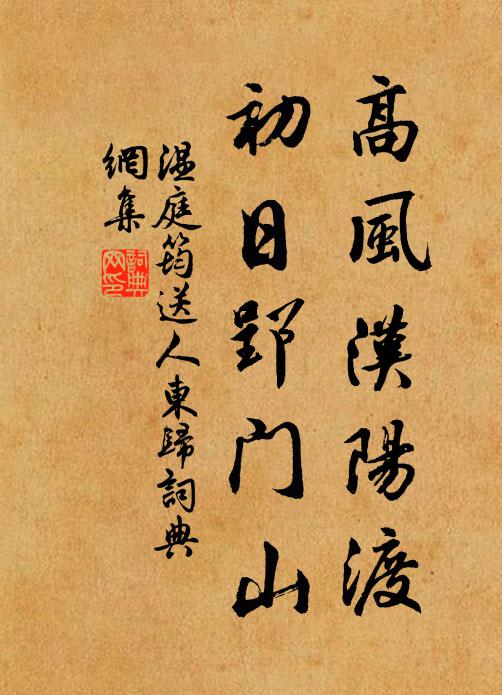 高風漢陽渡
初日郢門山
温庭筠送人東歸詞典
網集
詞典
網印